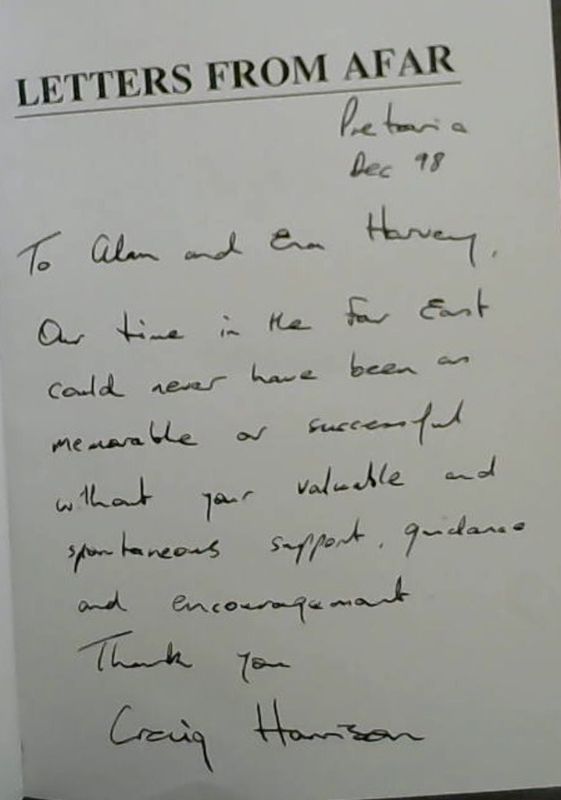 LETTERS FROM AFAR
Pretoria
Dec 98
To Alan and Harvey,
Our time in the Far East
could never have been as
memorable or successful
without your valuable and
spontaneous support, guidance
and encouragement
Thank you
Craig Harrison